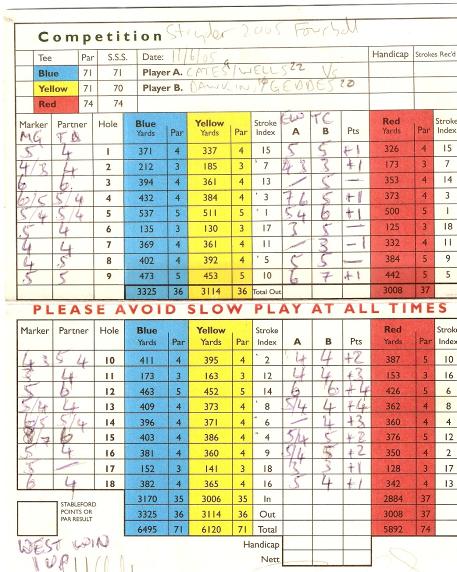 Competition Stryder 2005 Fourball
Handicap Strokes Rec'd
Tee Par S.S.S. Date: 11/6/05
Blue 71 71 Player A. CATES 9 / WELLS 22 Vs
Yellow 71 70 Player B. DAWKIN / GEDDES 20
Red 74 74
Marker Partner Hole Blue Yards Par Yellow Yards Par Stroke Index A B Pts Red Yards Par Stroke Index
5 4 1 371 4 337 4 15 5 5 +1 326 4 15
4/3 4 2 212 3 185 3 7 4 3 3 +1 173 3 7
6 6 3 394 4 361 4 13 / 5 – 353 4 14
6/5 5/4 4 432 4 384 4 3 7 6 5 +1 373 4 3
5/4 5/4 5 537 5 511 5 1 5 4 6 +1 500 5 1
5 4 6 135 3 130 3 17 3 5 – 125 3 18
4 4 7 369 4 361 4 11 / 3 –1 332 4 11
4 5 8 402 4 392 4 5 5 5 – 384 5 9
5 5 9 473 5 453 5 10 6 7 +1 442 5 5
3325 36 3114 36 Total Out 3008 37
PLEASE AVOID SLOW PLAY AT ALL TIMES
Marker Partner Hole Blue Yards Par Yellow Yards Par Stroke Index A B Pts Red Yards Par Stroke Index
4 3 5 4 10 411 4 395 4 2 4 4 +2 387 5 10
3 4 11 173 3 163 3 12 4 4 +3 153 3 16
5 6 12 463 5 452 5 14 6 6 +4 426 5 6
5/4 4 13 409 4 373 4 8 5/4 4 +4 362 4 8
6/5 5/4 14 396 4 371 4 6 – 4 +3 360 4 4
8/7 6 15 403 4 386 4 4 5/4 5 +2 376 5 12
5 4 16 381 4 360 4 9 5/4 5 +2 350 4 2
5 – 17 152 3 141 3 18 3 3 +1 128 3 17
6 4 18 382 4 365 4 16 5 4 +1 342 4 13
3170 35 3006 35 In 2884 37
STABLEFORD POINTS OR PAR RESULT
3325 36 3114 36 Out 3008 37
6495 71 6120 71 Total 5892 74
Handicap
WEST WIN
1 UP
Nett